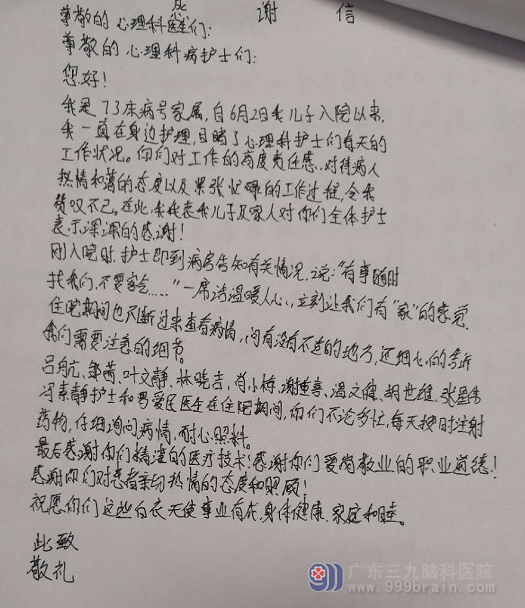 感 谢 信
尊敬的心理科医生们:
尊敬的心理科病护士们:
您好!
我是73床病号家属,自6月2日我儿子入院以来,
我一直在身边护理,目睹了心理科护士们每天的
工作状况。你们对工作的高度责任感,对待病人
热情和蔼的态度以及紧张忙碌的工作过程,令我
赞叹不已。在此,我代表我儿子及家人对你们全体护士
表示深深的感谢!
刚入院时,护士即到病房告知有关情况,说:“有事随时
找我们,不要客气……”一席话温暖人心,立刻让我们有“家”的感觉.
住院期间也不断过来查看病情,问有没有不适的地方,还细心的告诉
我们需要注意的细节。
叶文静、林晓吉、肖小梅、温文健、胡世雄、
冯素静护士和 爱民医生在住院期间,你们不论多忙,每天按时注射
药物,仔细询问病情,耐心照料。
最后感谢你们精湛的医疗技术!感谢你们爱岗敬业的职业道德!
感谢你们对患者亲切热情的态度和照顾!
祝愿你们这些白衣天使事业有成,身体健康,家庭和睦。
此致
敬礼
广东三九脑科医院
www.999brain.com